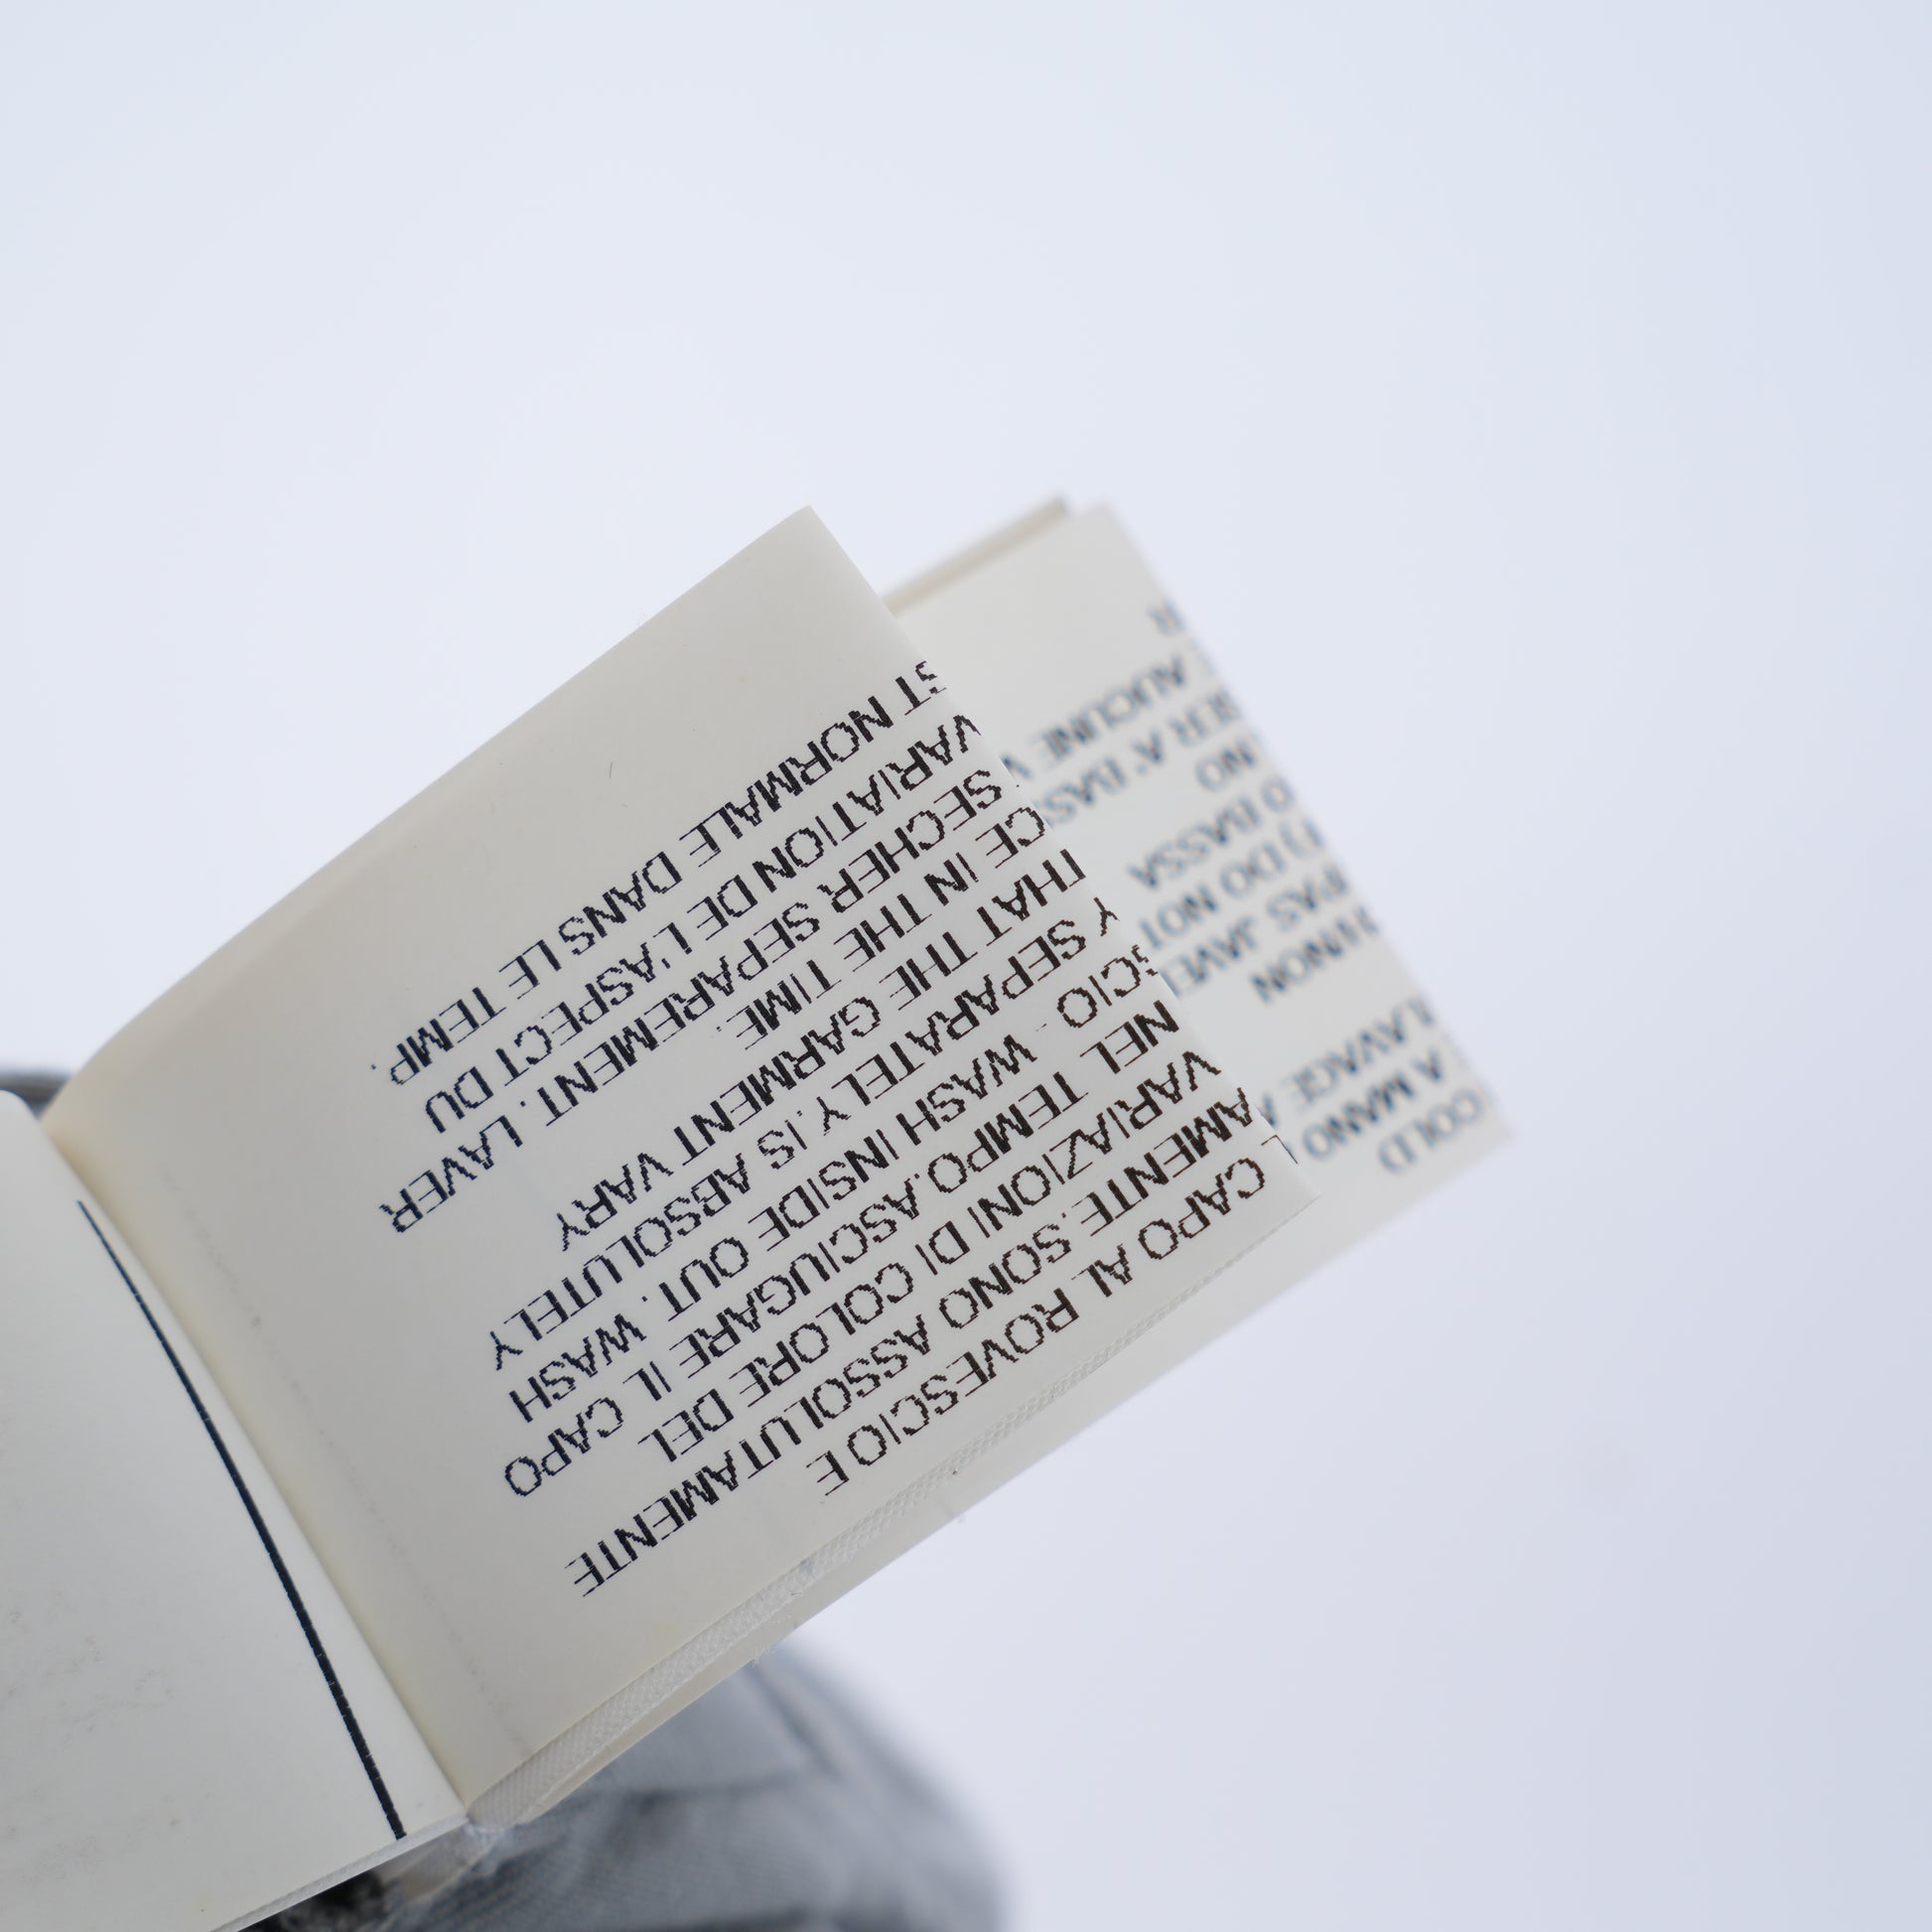 CAPO AL ROVESCIO E
AMENTE.SONO ASSOLUTAMENTE
VARIAZIONI DI COLORE DEL
NEL TEMPO.ASCIUGARE IL CAPO
SCIO - WASH INSIDE OUT. WASH
Y SEPARATELY.IS ABSOLUTELY
THAT THE GARMENT VARY
CE IN THE TIME.
SECHER SEPAREMENT. LAVER
VARIATION DE L'ASPECT DU
ST NORMALE DANS LE TEMP.
COLD
A MANO
LAVAGE A
NON
PAS JAVEL
DO NOT
BASSA
NO
SER A' BASS
AUCUNE V
R